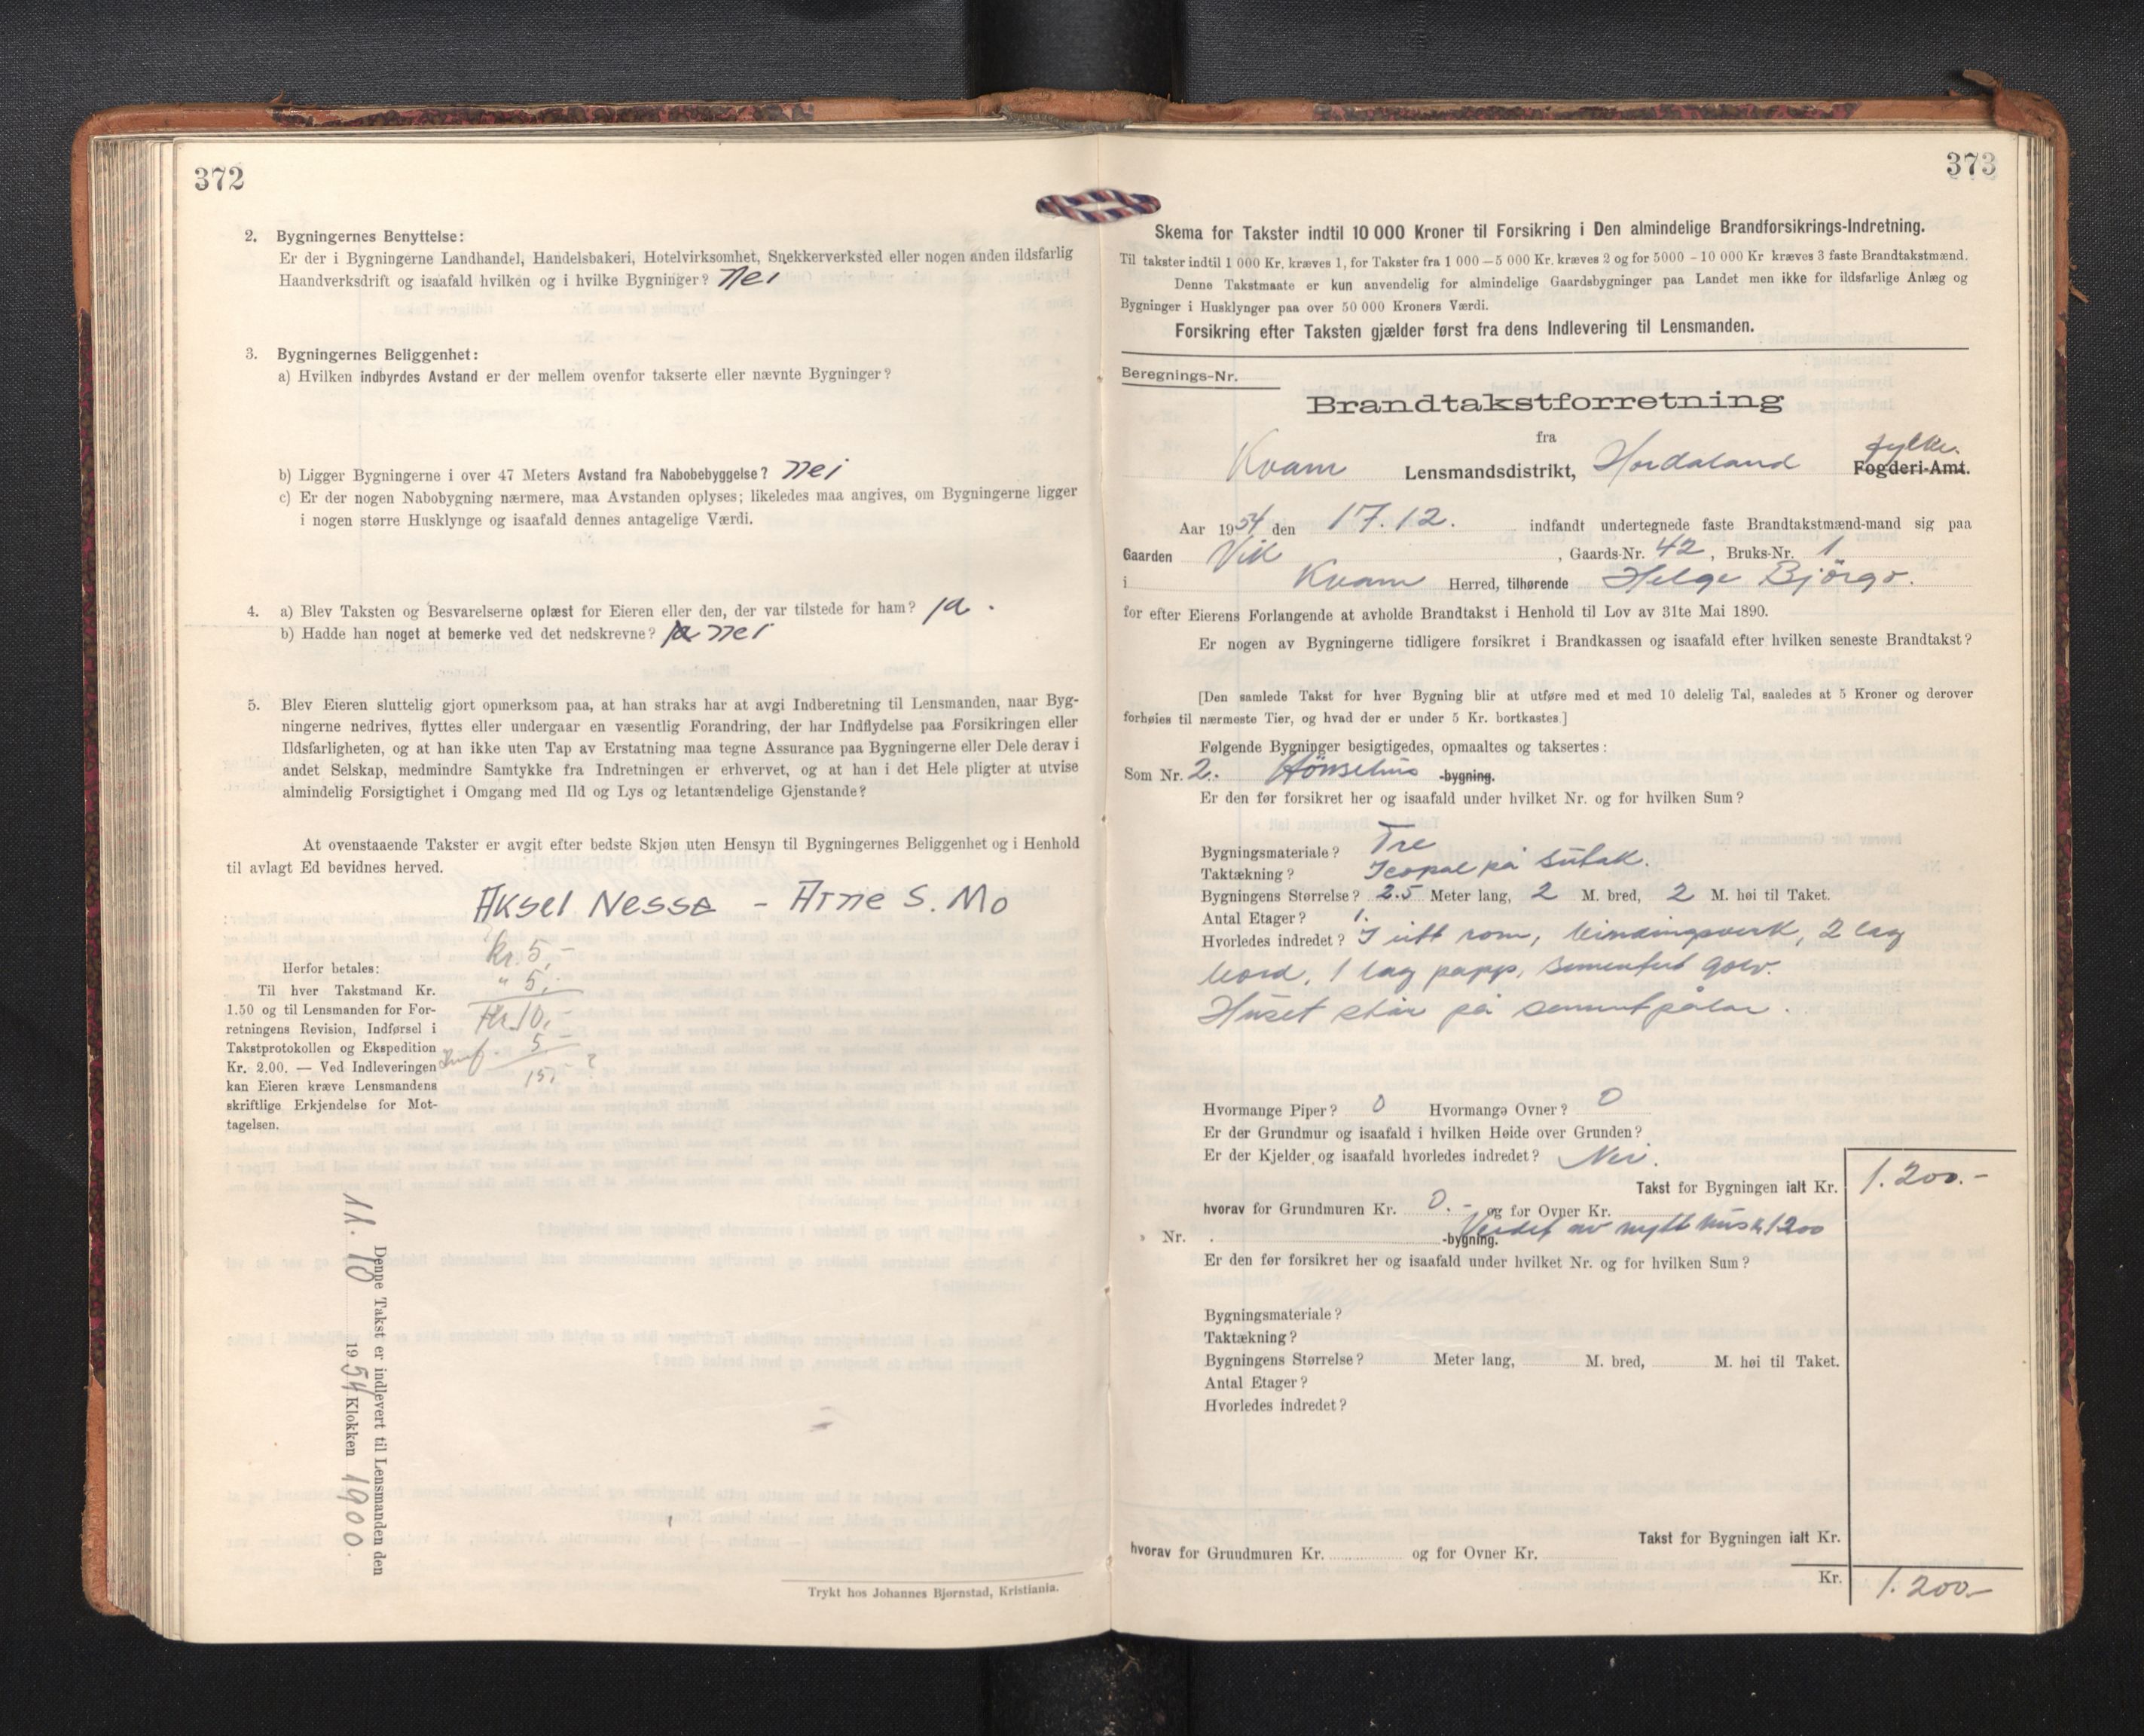 372
2. Bygningernes Benyttelse:
Er der i Bygningerne Landhandel, Handelsbakeri, Hotelvirksomhet, Snekkerverksted eller nogen anden ildsfarlig
Haandverksdrift og isaafald hvilken og i hvilke Bygninger? Nei
3. Bygningernes Beliggenhet:
a) Hvilken indbyrdes Avstand er der mellem ovenfor takserte eller nævnte Bygninger?
b) Ligger Bygningerne i over 47 Meters Avstand fra Nabobebyggelse? Nei
c) Er der nogen Nabobygning nærmere, maa Avstanden oplyses; likeledes maa angives, om Bygningerne ligger
i nogen større Husklynge og isaafald dennes antagelige Værdi.
4. a) Blev Taksten og Besvarelserne oplæst for Eieren eller den, der var tilstede for ham? ja.
b) Hadde han noget at bemerke ved det nedskrevne? ja nei
5. Blev Eieren sluttelig gjort opmerksom paa, at han straks har at avgi Indberetning til Lensmanden, naar Byg-
ningerne nedrives, flyttes eller undergaar en væsentlig Forandring, der har Indflydelse paa Forsikringen eller
Ildsfarligheten, og at han ikke uten Tap av Erstatning maa tegne Assurance paa Bygningerne eller Dele derav i
andet Selskap, medmindre Samtykke fra Indretningen er erhvervet, og at han i det Hele pligter at utvise
almindelig Forsigtighet i Omgang med Ild og Lys og letantændelige Gjenstande?
At ovenstaaende Takster er avgit efter bedste Skjøn uten Hensyn til Bygningernes Beliggenhet og i Henhold
til avlagt Ed bevidnes herved.
Aksel Nesse - Arne S. Mo
kr. 5,-
" 5,-
Kr. 10,-
5 -
15,- ?
Herfor betales:
Til hver Takstmand Kr.
1.50 og til Lensmanden for For-
retningens Revision, Indførsel i
Takstprotokollen og Ekspedition
Kr. 2.00. — Ved Indleveringen
kan Eieren kræve Lensmandens
skriftlige Erkjendelse for Mot-
tagelsen.
Denne Takst er indlevert til Lensmanden den
11. 10 1954 Klokken 1900.
Trykt hos Johannes Bjørnstad, Kristiania.
373
Skema for Takster indtil 10 000 Kroner til Forsikring i Den almindelige Brandforsikrings-Indretning.
Til takster indtil 1 000 Kr. kræves 1, for Takster fra 1 000 — 5 000 Kr. kræves 2 og for 5000 - 10 000 Kr kræves 3 faste Brandtakstmænd.
Denne Takstmaate er kun anvendelig for almindelige Gaardsbygninger paa Landet men ikke for ildsfarlige Anlæg og
Bygninger i Husklynger paa over 50 000 Kroners Værdi.
Forsikring efter Taksten gjælder først fra dens Indlevering til Lensmanden.
Beregnings-Nr.
Brandtakstforretning
fra
fylke.
Kvam Lensmandsdistrikt, Hordaland Fogderi-Amt.
Aar 1954 den 17.12. indfandt undertegnede faste Brandtakstmænd-mand sig paa
Gaarden Vik, Gaards-Nr. 42, Bruks-Nr. 1
i Kvam Herred, tilhørende Helge Bjørgo.
for efter Eierens Forlangende at avholde Brandtakst i Henhold til Lov av 31te Mai 1890.
Er nogen av Bygningerne tidligere forsikret i Brandkassen og isaafald efter hvilken seneste Brandtakst?
[Den samlede Takst for hver Bygning blir at utføre med et med 10 delelig Tal, saaledes at 5 Kroner og derover
forhøies til nærmeste Tier, og hvad der er under 5 Kr. bortkastes.]
Følgende Bygninger besigtigedes, opmaaltes og taksertes:
Som Nr. 2. Hönsehus -bygning.
Er den før forsikret her og isaafald under hvilket Nr. og for hvilken Sum?
Bygningsmateriale? Tre
Taktækning? Icopal på sutak.
Bygningens Størrelse? 2.5 Meter lang, 2 M. bred, 2 M. høi til Taket.
Antal Etager? 1.
Hvorledes indredet? I eitt rom, bindingsverk, 2 lag
bord, 1 lag papp, sementert golv.
Huset står på sementpålar.
Hvormange Piper? 0 Hvormange Ovner? 0
Er der Grundmur og isaafald i hvilken Høide over Grunden?
Er der Kjelder og isaafald hvorledes indredet? Nei.
Takst for Bygningen ialt Kr. 1.200.-
hvorav for Grundmuren Kr. 0.- og for Ovner Kr.
Verdet av nytt hus k 1200
" Nr. -bygning.
Er den før forsikret her og isaafald under hvilket Nr. og for hvilken Sum?
Bygningsmateriale?
Taktækning?
Bygningens Størrelse? Meter lang, M. bred, M. høi til Taket.
Antal Etager?
Hvorledes indredet?
Takst for Bygningen ialt Kr.
hvorav for Grundmuren Kr. og for Ovner Kr.
Kr. 1.200-